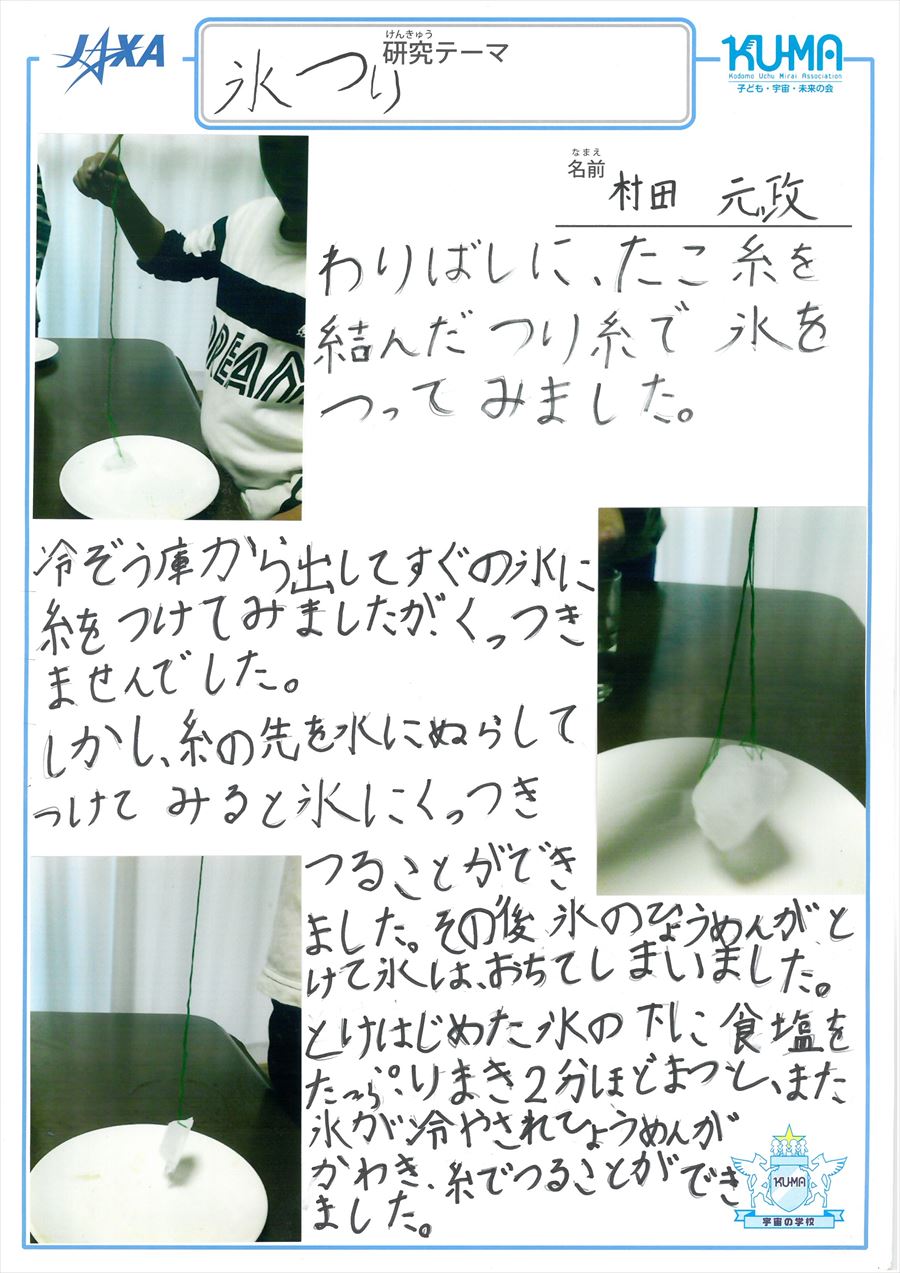 JAXA
けんきゅう
研究テーマ
氷つり
KU-MA
Kodomo Uchu Mirai Association
子ども・宇宙・未来の会
なまえ
名前
村田 元政
わりばしに、たこ糸を
結んだつり糸で 氷を
つってみました。
DREAM
冷ぞう庫から出してすぐの氷に
糸をつけてみましたが、くっつき
ませんでした。
しかし、糸の先を水にぬらして
つけてみると氷にくっつき
つることができ
ました。その後 氷のひょうめんがと
けて氷は、おちてしまいました。
とけはじめた氷の下に食塩を
たっぷりまき2分ほどまつと、また
氷が冷やされひょうめんが
かわき、糸でつることができ
ました。
KU-MA
宇宙の学校